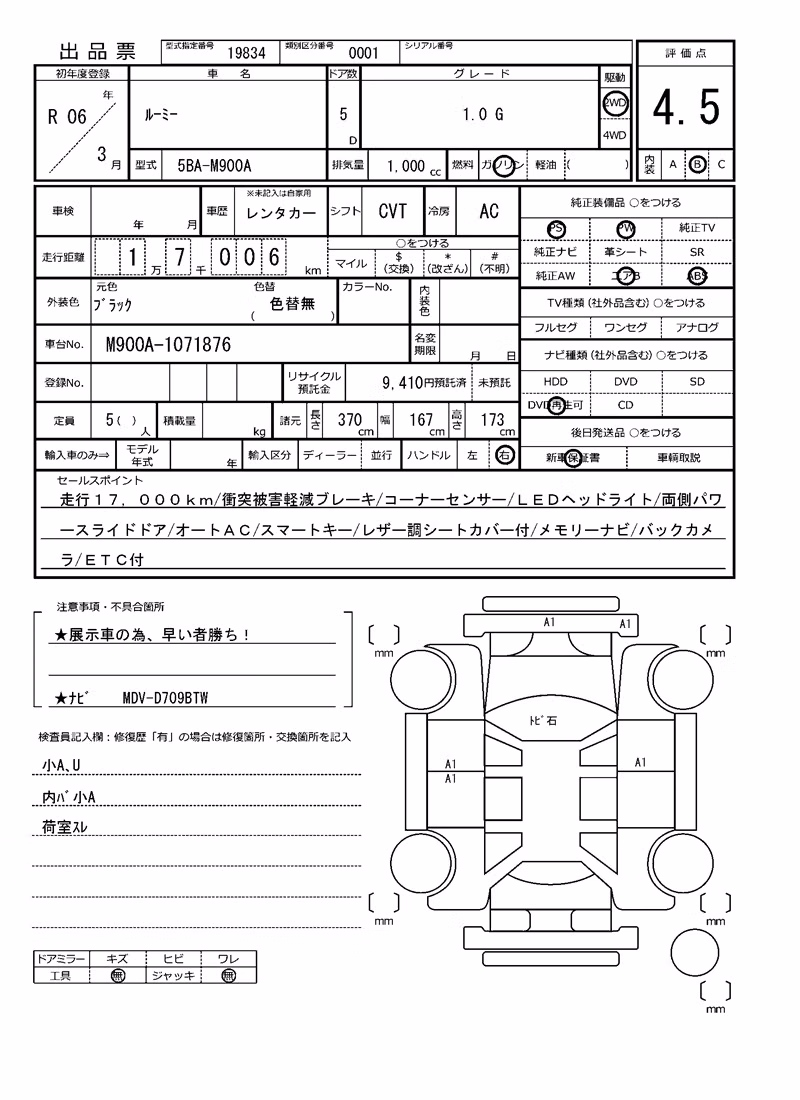 出品票 型式指定番号 19834 類別区分番号 0001 シリアル番号
評価点
4.5
内装 A B C
初年度登録 車名 ドア数 グレード 駆動
R 06 年 3 月 ルーミー 5 D 1.0 G 2WD
4WD
型式 5BA-M900A 排気量 1,000 cc 燃料 ガソリン 軽油 ( )
車検 年 月 車歴 ※未記入は自家用
レンタカー シフト CVT 冷房 AC
走行距離 1 万 7 千 0 0 6 km ○をつける
マイル $(交換) *(改ざん) #(不明)
外装色 元色 ブラック 色替 ( 色替無 ) カラーNo. 内装色
車台No. M900A-1071876 名変期限 月 日
登録No. リサイクル預託金 9,410円預託済 未預託
定員 5( )人 積載量 kg 諸元 長さ 370 cm 幅 167 cm 高さ 173 cm
輸入車のみ⇒ モデル年式 年 輸入区分 ディーラー 並行 ハンドル 左 右
純正装備品 ○をつける
PS PW 純正TV
純正ナビ 革シート SR
純正AW エアB ABS
TV種類 (社外品含む) ○をつける
フルセグ ワンセグ アナログ
ナビ種類 (社外品含む) ○をつける
HDD DVD SD
DVD再生可 CD
後日発送品 ○をつける
新車保証書 車輌取説
セールスポイント
走行17，000km/衝突被害軽減ブレーキ/コーナーセンサー/LEDヘッドライト/両側パワ
ースライドドア/オートAC/スマートキー/レザー調シートカバー付/メモリーナビ/バックカメ
ラ/ETC付
注意事項・不具合箇所
★展示車の為、早い者勝ち！
★ﾅﾋﾞ MDV-D709BTW
検査員記入欄：修復歴「有」の場合は修復箇所・交換箇所を記入
小A､U
内ﾊﾞ小A
荷室ｽﾚ
ドアミラー キズ ヒビ ワレ
工具 無 ジャッキ 無
A1 A1
mm mm
ﾄﾋﾞ石
A1 A1
A1
mm mm
mm